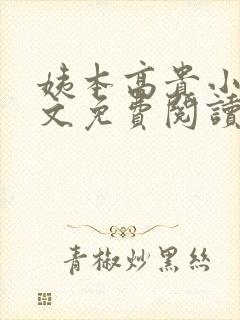 姨本高貴小
文免費閱讀
青椒炒黑絲